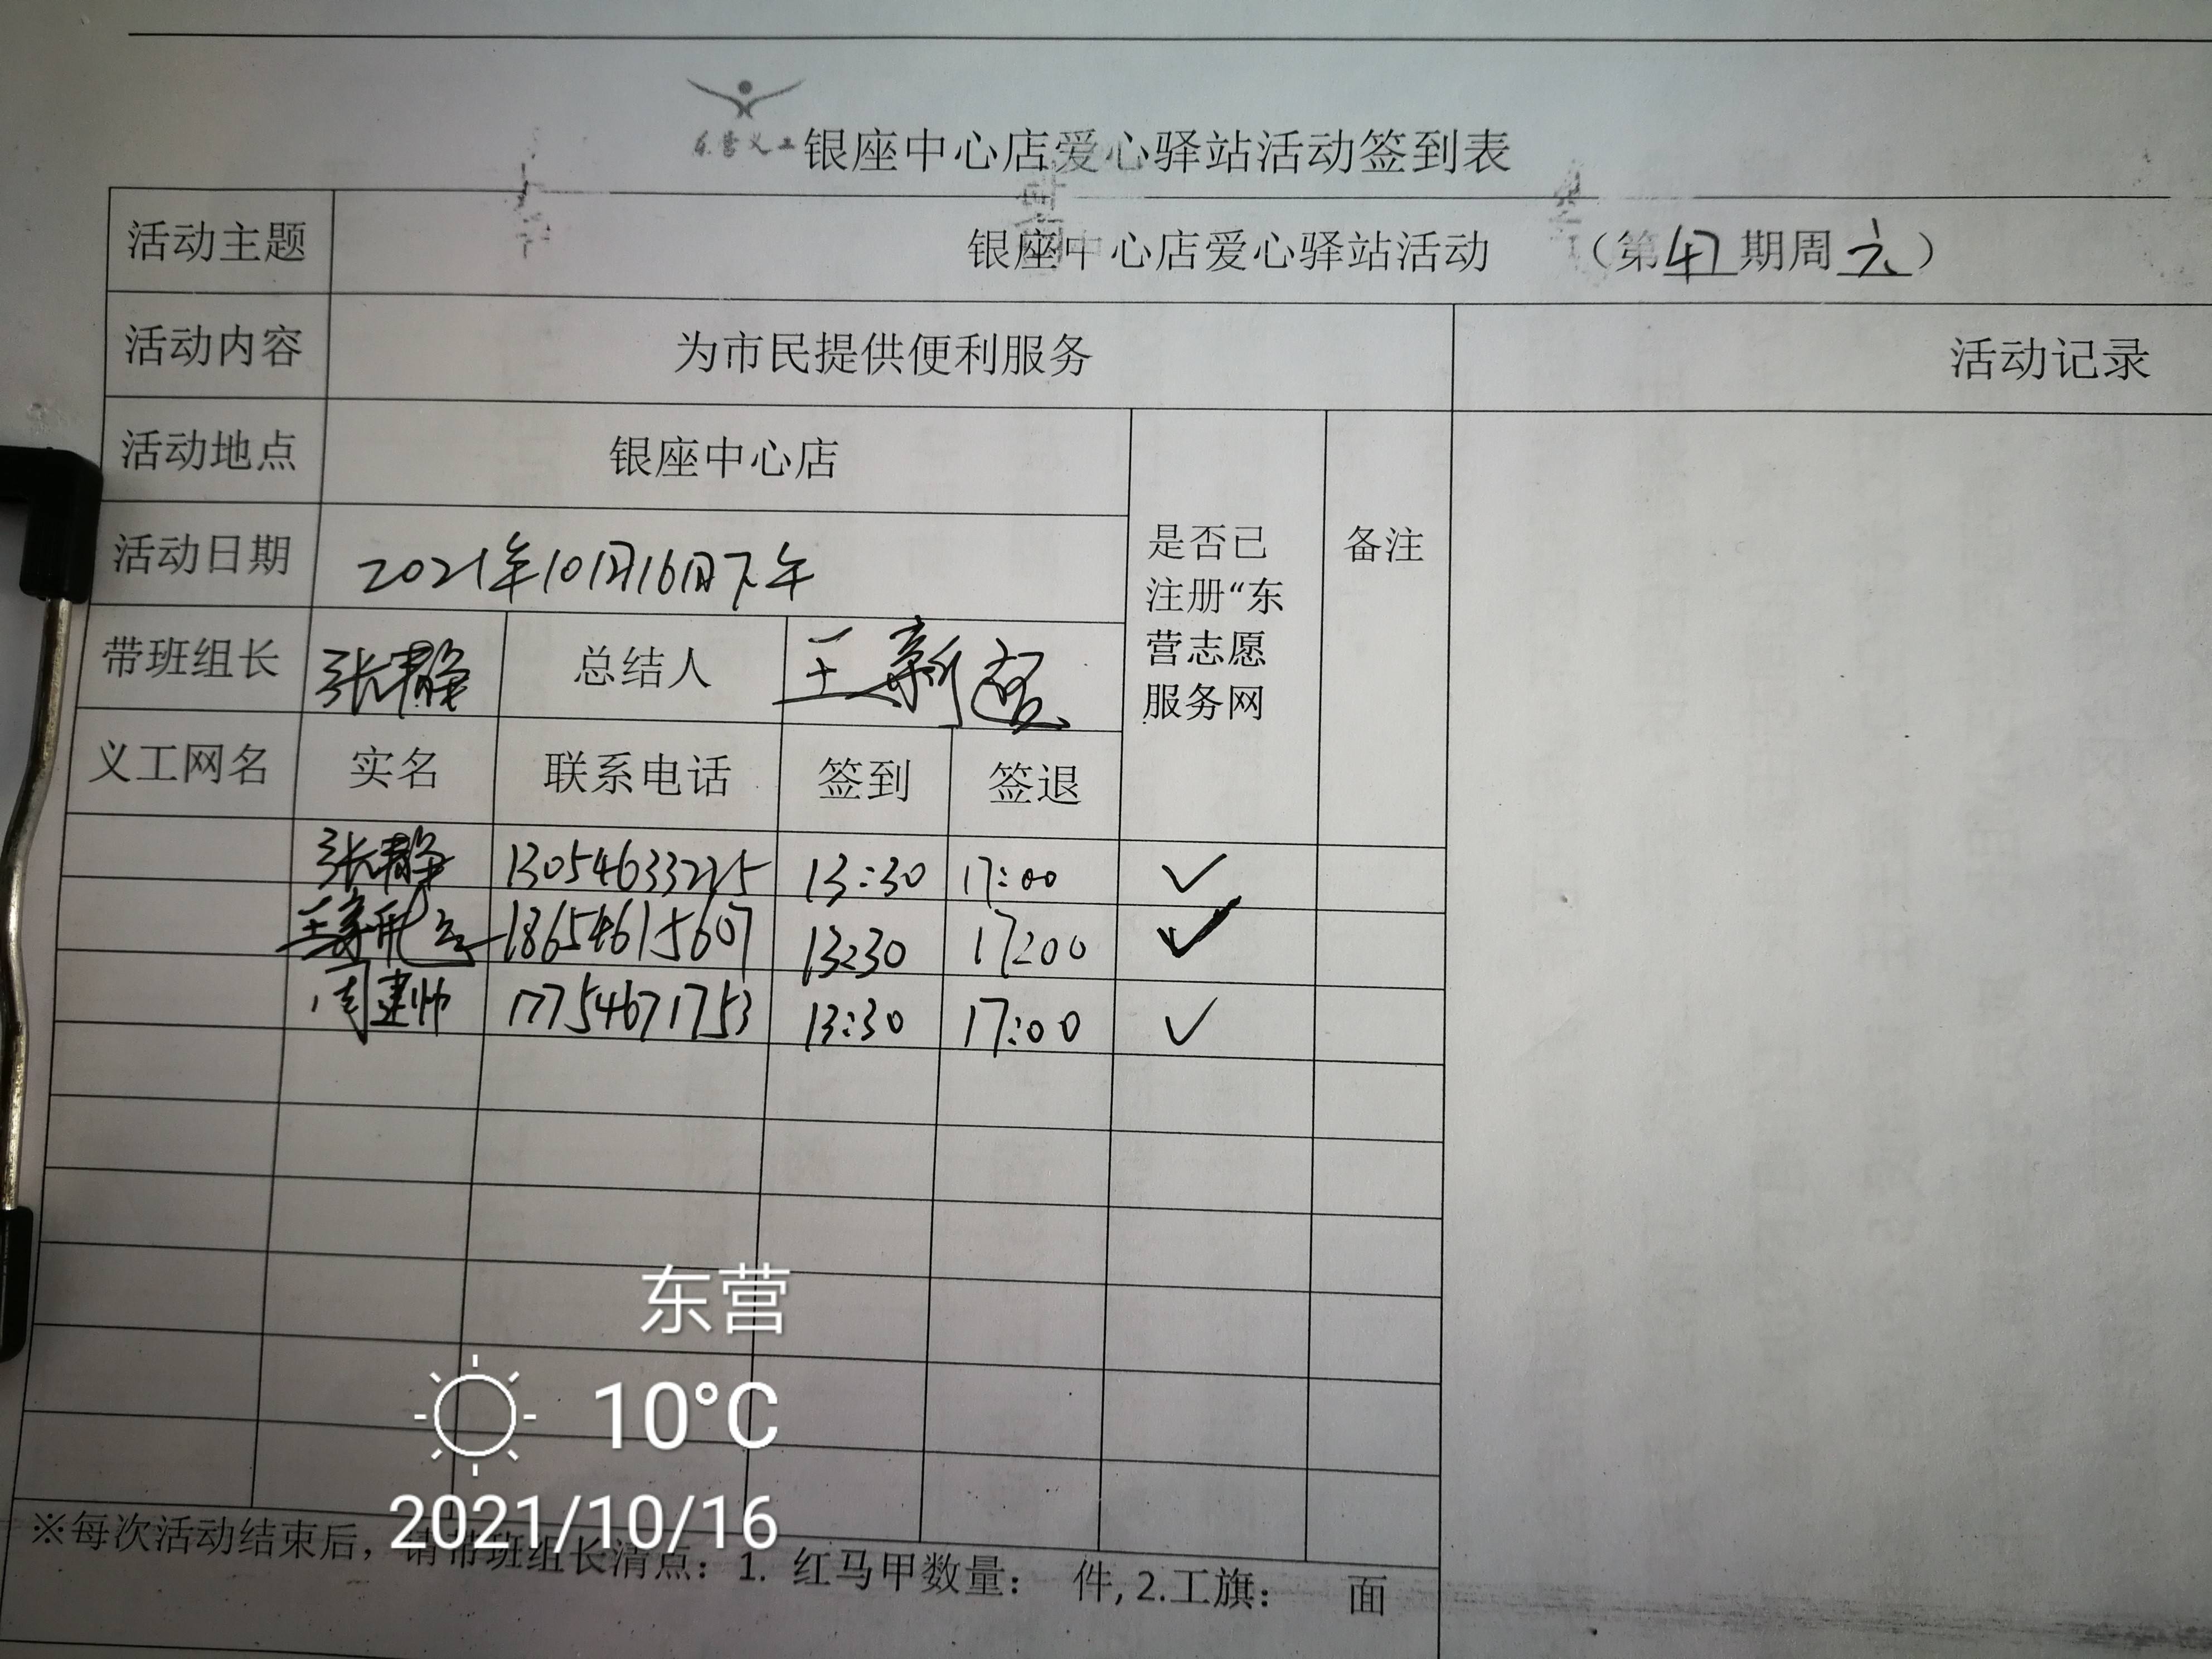 东营义工
银座中心店爱心驿站活动签到表
活动主题 银座中心店爱心驿站活动 （第47期周六）
活动内容 为市民提供便利服务 活动记录
活动地点 银座中心店
活动日期 2021年10月16日下午
是否已
注册“东
营志愿
服务网
备注
带班组长 张静 总结人 王新
义工网名 实名 联系电话 签到 签退
张静 13054633225 13:30 17:00 ✓
王新 18654615607 13:30 17:00 ✓
周建帅 17754671753 13:30 17:00 ✓
东营
10°C
2021/10/16
※每次活动结束后，请带班组长清点：1. 红马甲数量： 件, 2.工旗： 面